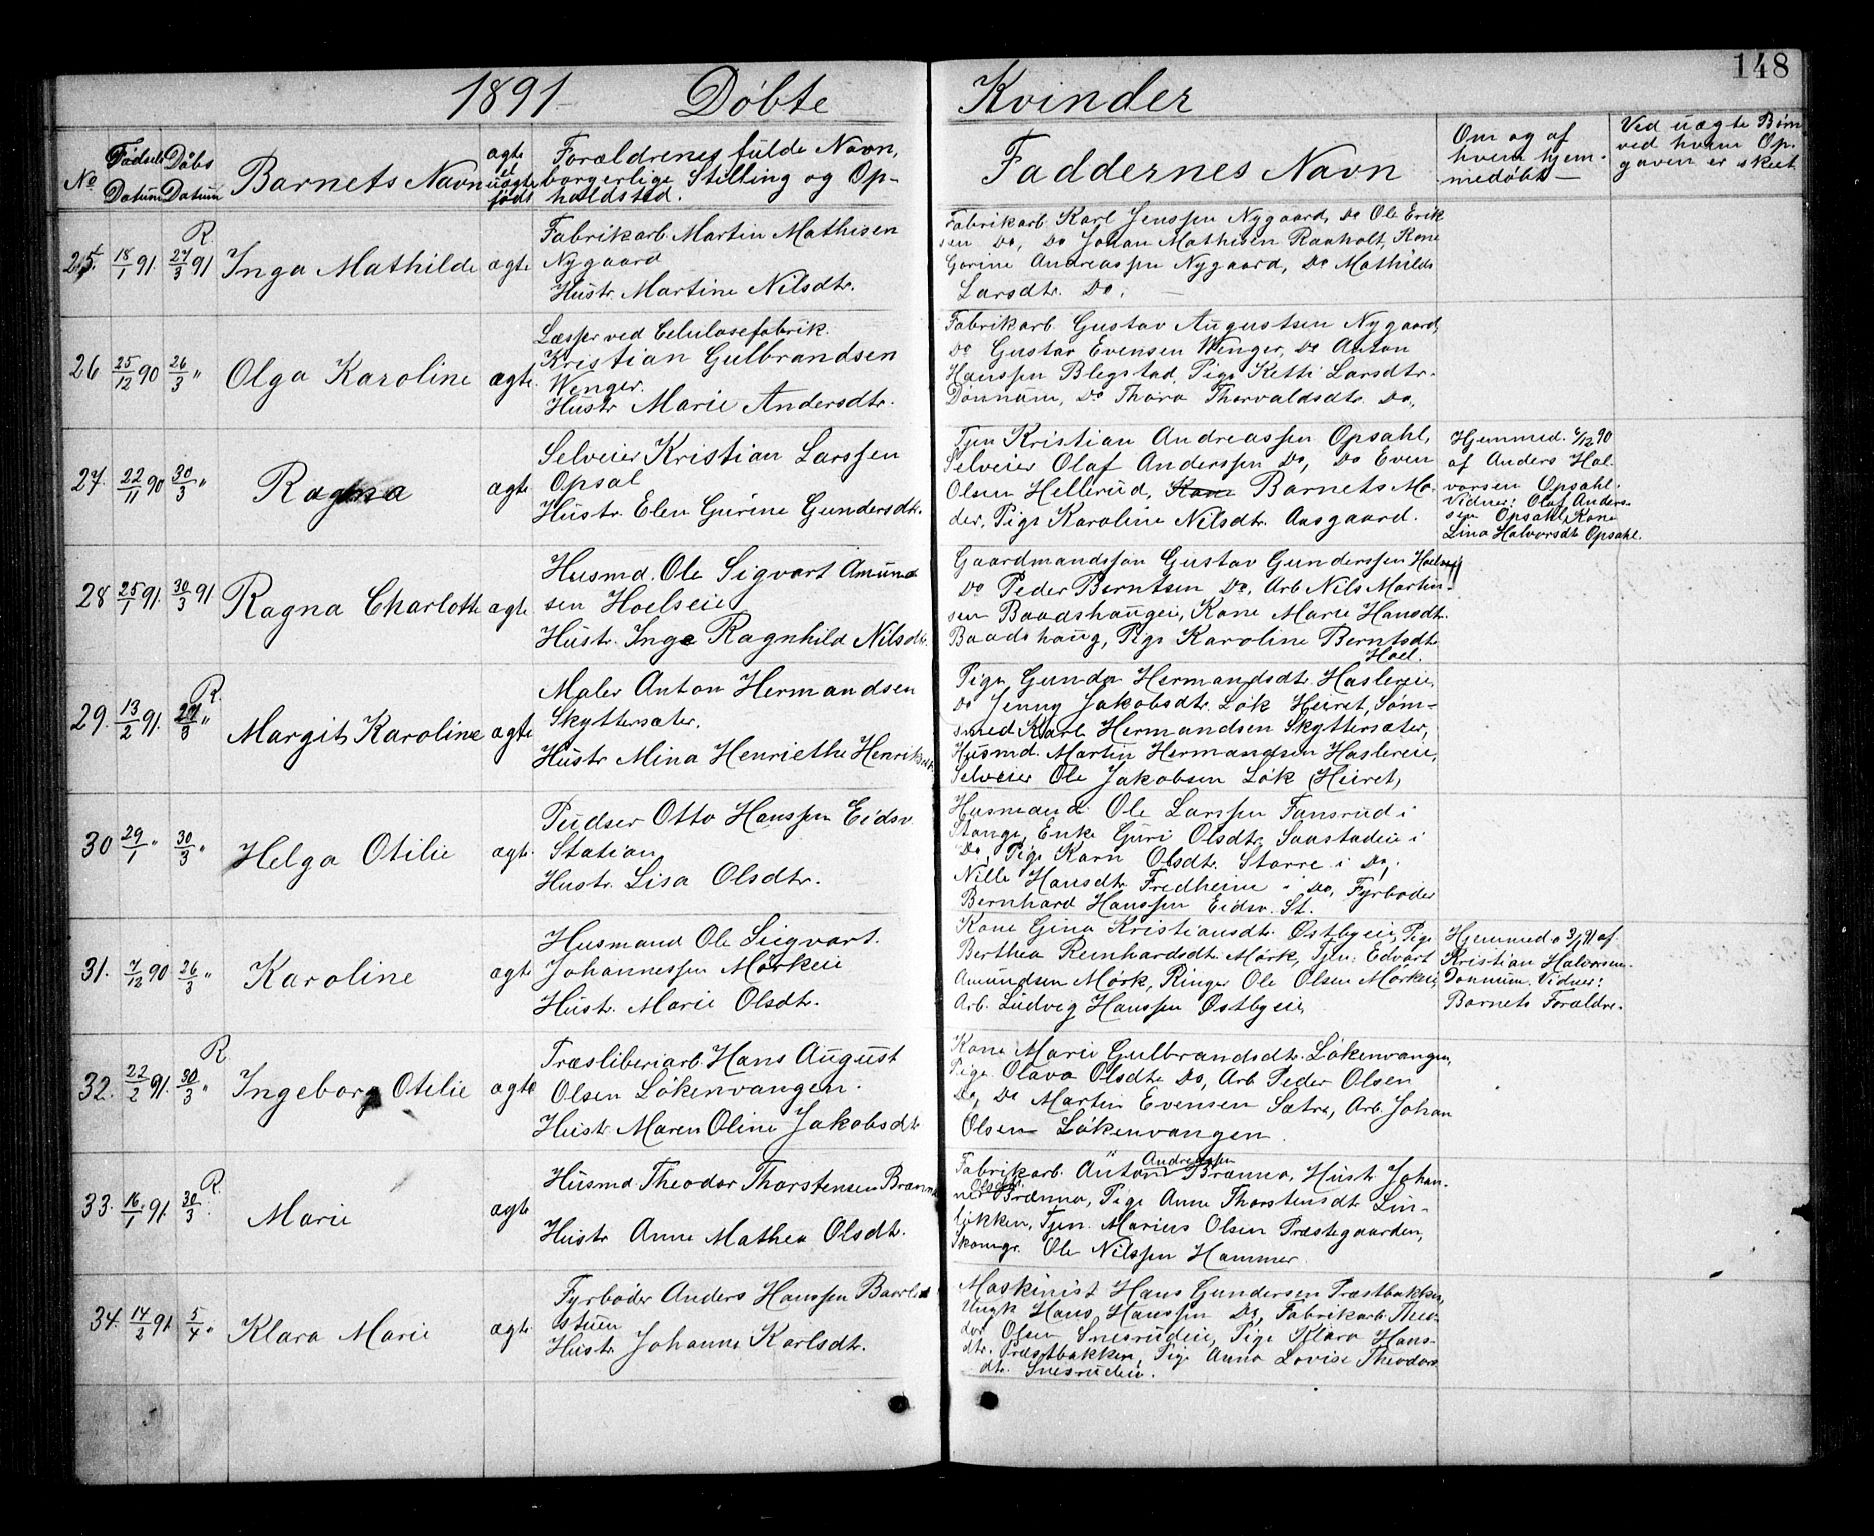 148
1891 Døbte Kvinder
No
Fødsels Datum
Døbs Datum
Barnets Navn
ægte el uægte født
Forældrenes fulde Navn,
borgerlige Stilling og Op-
holdsted.
Faddernes Navn
Om og af
hvem hjem-
medøbt
Ved uægte Børn
ved hvem Op-
gaven er skeet
25. 18/1 91. R. 27/3 91 Inga Mathilde ægte
Fabrikarb. Martin Mathisen
Nygaard
Hustr. Martine Nilsdtr.
Fabrikarb. Karl Jenssen Nygaard, Do Ole Erik
sen Do, Do Johan Mathisen Raaholt, Kone
Gorine Andreassen Nygaard, Do Mathilde
Larsdtr. Do.
26 25/12 90 26/3 " Olga Karoline ægte.
Læsser ved Celulosefabrik.
Kristian Gulbrandsen
Wenger.
Hustr Marie Andersdtr.
Fabrikarb. Gustav Augustsen Nygaard,
Do Gustav Evensen Wenger, Do Anton
Hanssen Blegstad, Pige Ketti Larsdtr.
Dønnum, Do Thora Thorvaldsdtr. Do.,
27. 22/11 90 30/3 " Ragna ægte
Selveier Kristian Larssen
Opsal
Hustr. Elen Gurine Gundersdtr.
Tjen Kristian Andreassen Opsahl,
Selveier Olaf Anderssen Do, Do Even
Olsen Hellerud, Kone Barnets Mo-
der, Pige Karoline Nilsdtr. Aasgaard.
Hjemmed. 6/12 90
af Anders Hal-
vorsen Opsahl.
Vidner: Olaf Anders-
sen Opsahl, Kone
Lina Halvorsdtr Opsahl.
28 25/1 91. 30/3 91 Ragna Charlotte ægte
Husmd. Ole Sigvart Amund
sen Hoelseie
Hustr. Inge Ragnhild Nilsdtr.
Gaardmandssøn Gustav Gunderssen Hoel
Do Peder Berntsen Do, Arb. Nils Martin-
sen Baadshaugeie, Kone Marie Hansdtr.
Baadshaug, Pige Karoline Berntsdtr
Hoel.
29. 13/2 91. R. 27/3 " Margit Karoline ægte
Maler Anton Hermandsen
Skyttersæter.
Hustr Mina Henriethe Henriksdtr
Pige Gunda Hermandsdtr. Haslereie,
Do Jenny Jakobsdtr. Løk Heiret, Søm-
smed Karl Hermandsen Skyttersæter,
Husmd. Martin Hermandsen Haslereie,
Selveier Ole Jakobsen Løk Heiret,
30 29/1 " 30/3 " Helga Otilie ægte.
Pudser Otto Hanssen Eidsv.
Station
Hustr. Lisa Olsdtr.
Husmand Ole Larssen Fansrud i
Stange, Enke Guri Olsdtr. Saastadeie i
Do, Pige Karn Olsdtr. Starre i Do,.
Nille Hansdtr. Fredheim i Do, Fyrbøder
Bernhard Hanssen Eidsv. St.
31. 7/12 90 26/3 " Karoline ægte
Husmand Ole Sigvart.
Johannessen Mørkeie
Hustr. Marie Olsdtr.
Kone Gina Kristiansdtr. Østbyeie, Pige
Berthea Reinhardsdtr. Mørk, Tjen. Edvart
Amundsen Mørk, Ringer Ole Olsen Mørkeie,
Arb. Ludvig Hanssen Østbyeie,
Hjemmed. 3/1 91 af
Kristian Halvorsen
Dønnum. Vidner:
Barnets Forældre.
32. 22/2 91. R 30/3 " Ingeborg Otilie ægte
Træsliberiarb. Hans August
Olsen Løkenvangen.
Hustr. Maren Oline Jakobsdtr
Kone Marie Gulbrandsdtr. Løkenvangen,
Pige Olava Olsdtr. Do, Arb. Peder Olsen
Do, Do Martin Evensen Sætre, Arb. Johan
Olsen Løkenvangen.
33. 16/1 91. R. 30/3 Marie ægte
Husmd. Theodor Thorstensen Brænna
Hustr Anne Mathea Olsdtr.
Fabrikarb. Anton Andreassen Brænna, Hustr. Johan-
ne Olsdtr. Brænna, Pige Anne Thorstensdtr. Lin-
løkken, Tjen. Marius Olsen Præstegaarden,
Skomgr. Ole Nilssen Hammer.
34. 14/2 91. 5/4 " Klara Marie ægte
Fyrbøder Anders Hanssen Baarlid
stuen
Hustr. Johanne Karlsdtr.
Maskinist Hans Gundersen Præstbakken,
Ungk Hans Hanssen Do, Fabrikarb. Theo-
dor Olsen Snesrudeie, Pige Klara Hans-
dtr. Præstbakken, Pige Anna Lovise Theodors
dtr. Snesrudeie.